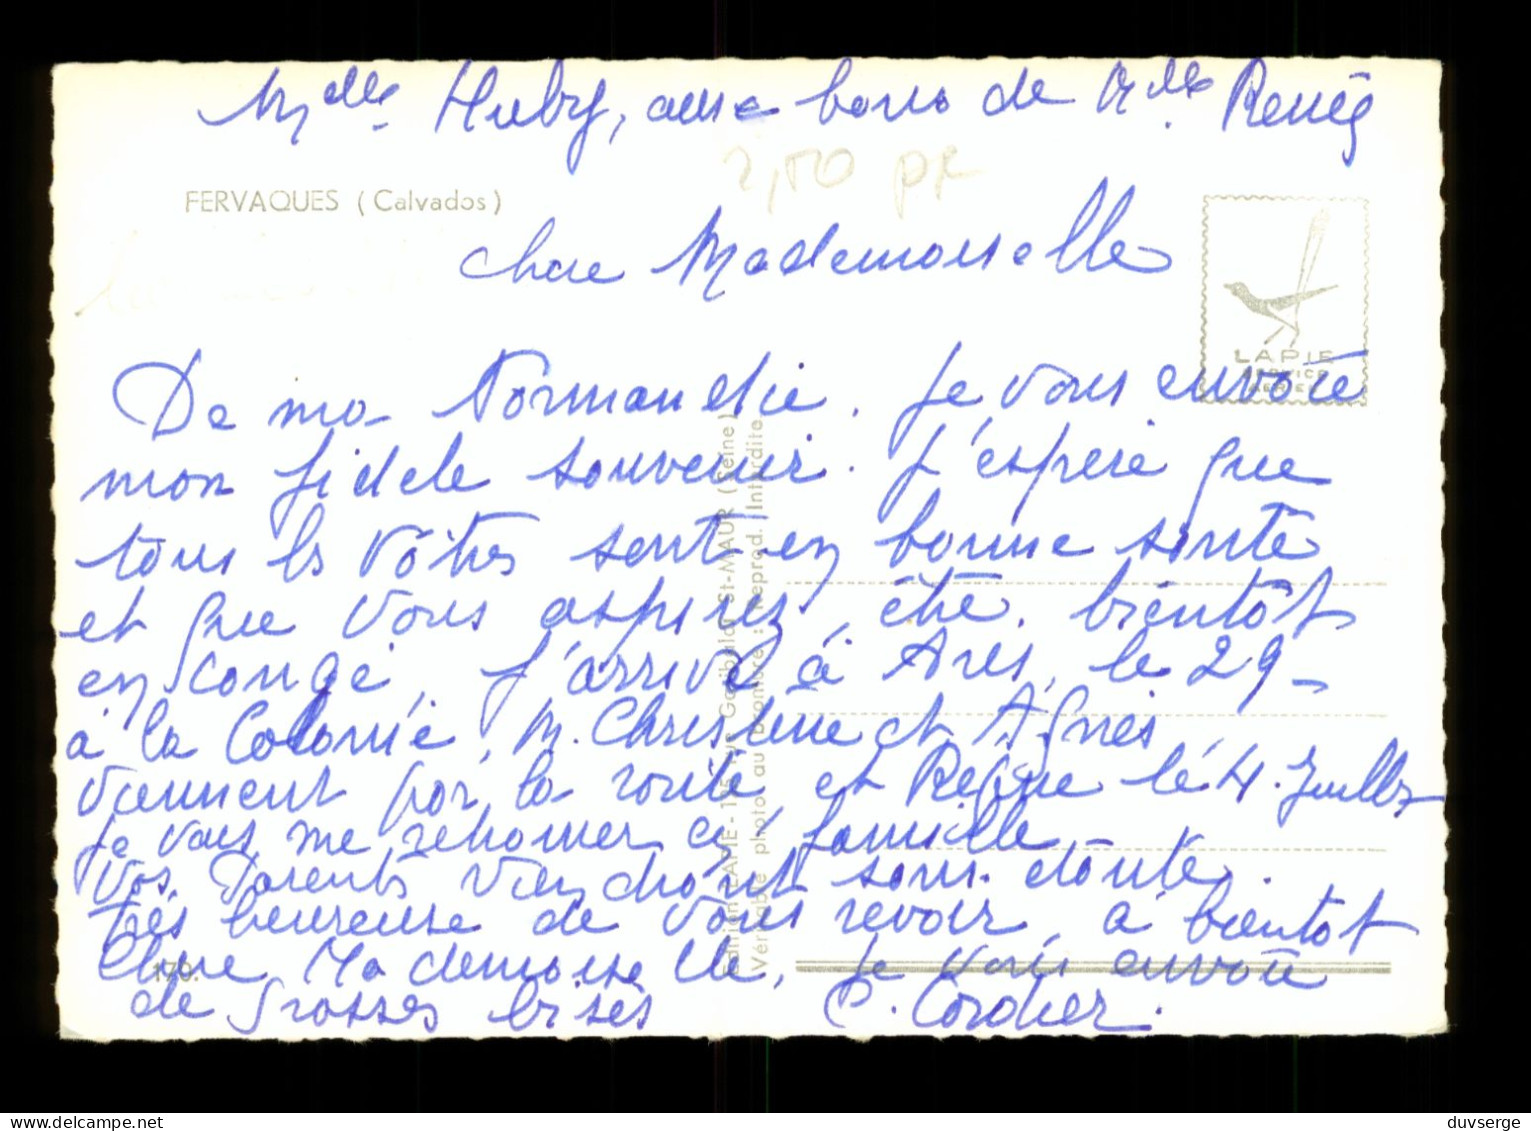 Melle Huby, aux bons de Melle Renée
2,50 pk
FERVAQUES (Calvados)
chere Mademoiselle
LAPIE
SERVICE
AERIEN
De ma Normandie. Je vous envoie
mon fidele souvenir. J'espere que
tous les vôtres sont en bonne sante
et que vous aspirez être bientôt
en congé, J'arrive à Ares, le 29 -
à la Colonie, M. Christine et Agnes
viennent par la route et Regine le 4. Juillet
Je vais me retrouver en famille
Vos Parents viendront sans doute.
très heureuse de vous revoir, à bientôt
Chere Mademoiselle, Je vous envoie
de grosses bises C. Cordier.
170.
Edition LAPIE - rue Garibaldi St-MAUR (Seine)
Véritable photo au bromure : Reprod. Interdite
Les dernières enchères et la boutique
duvserge